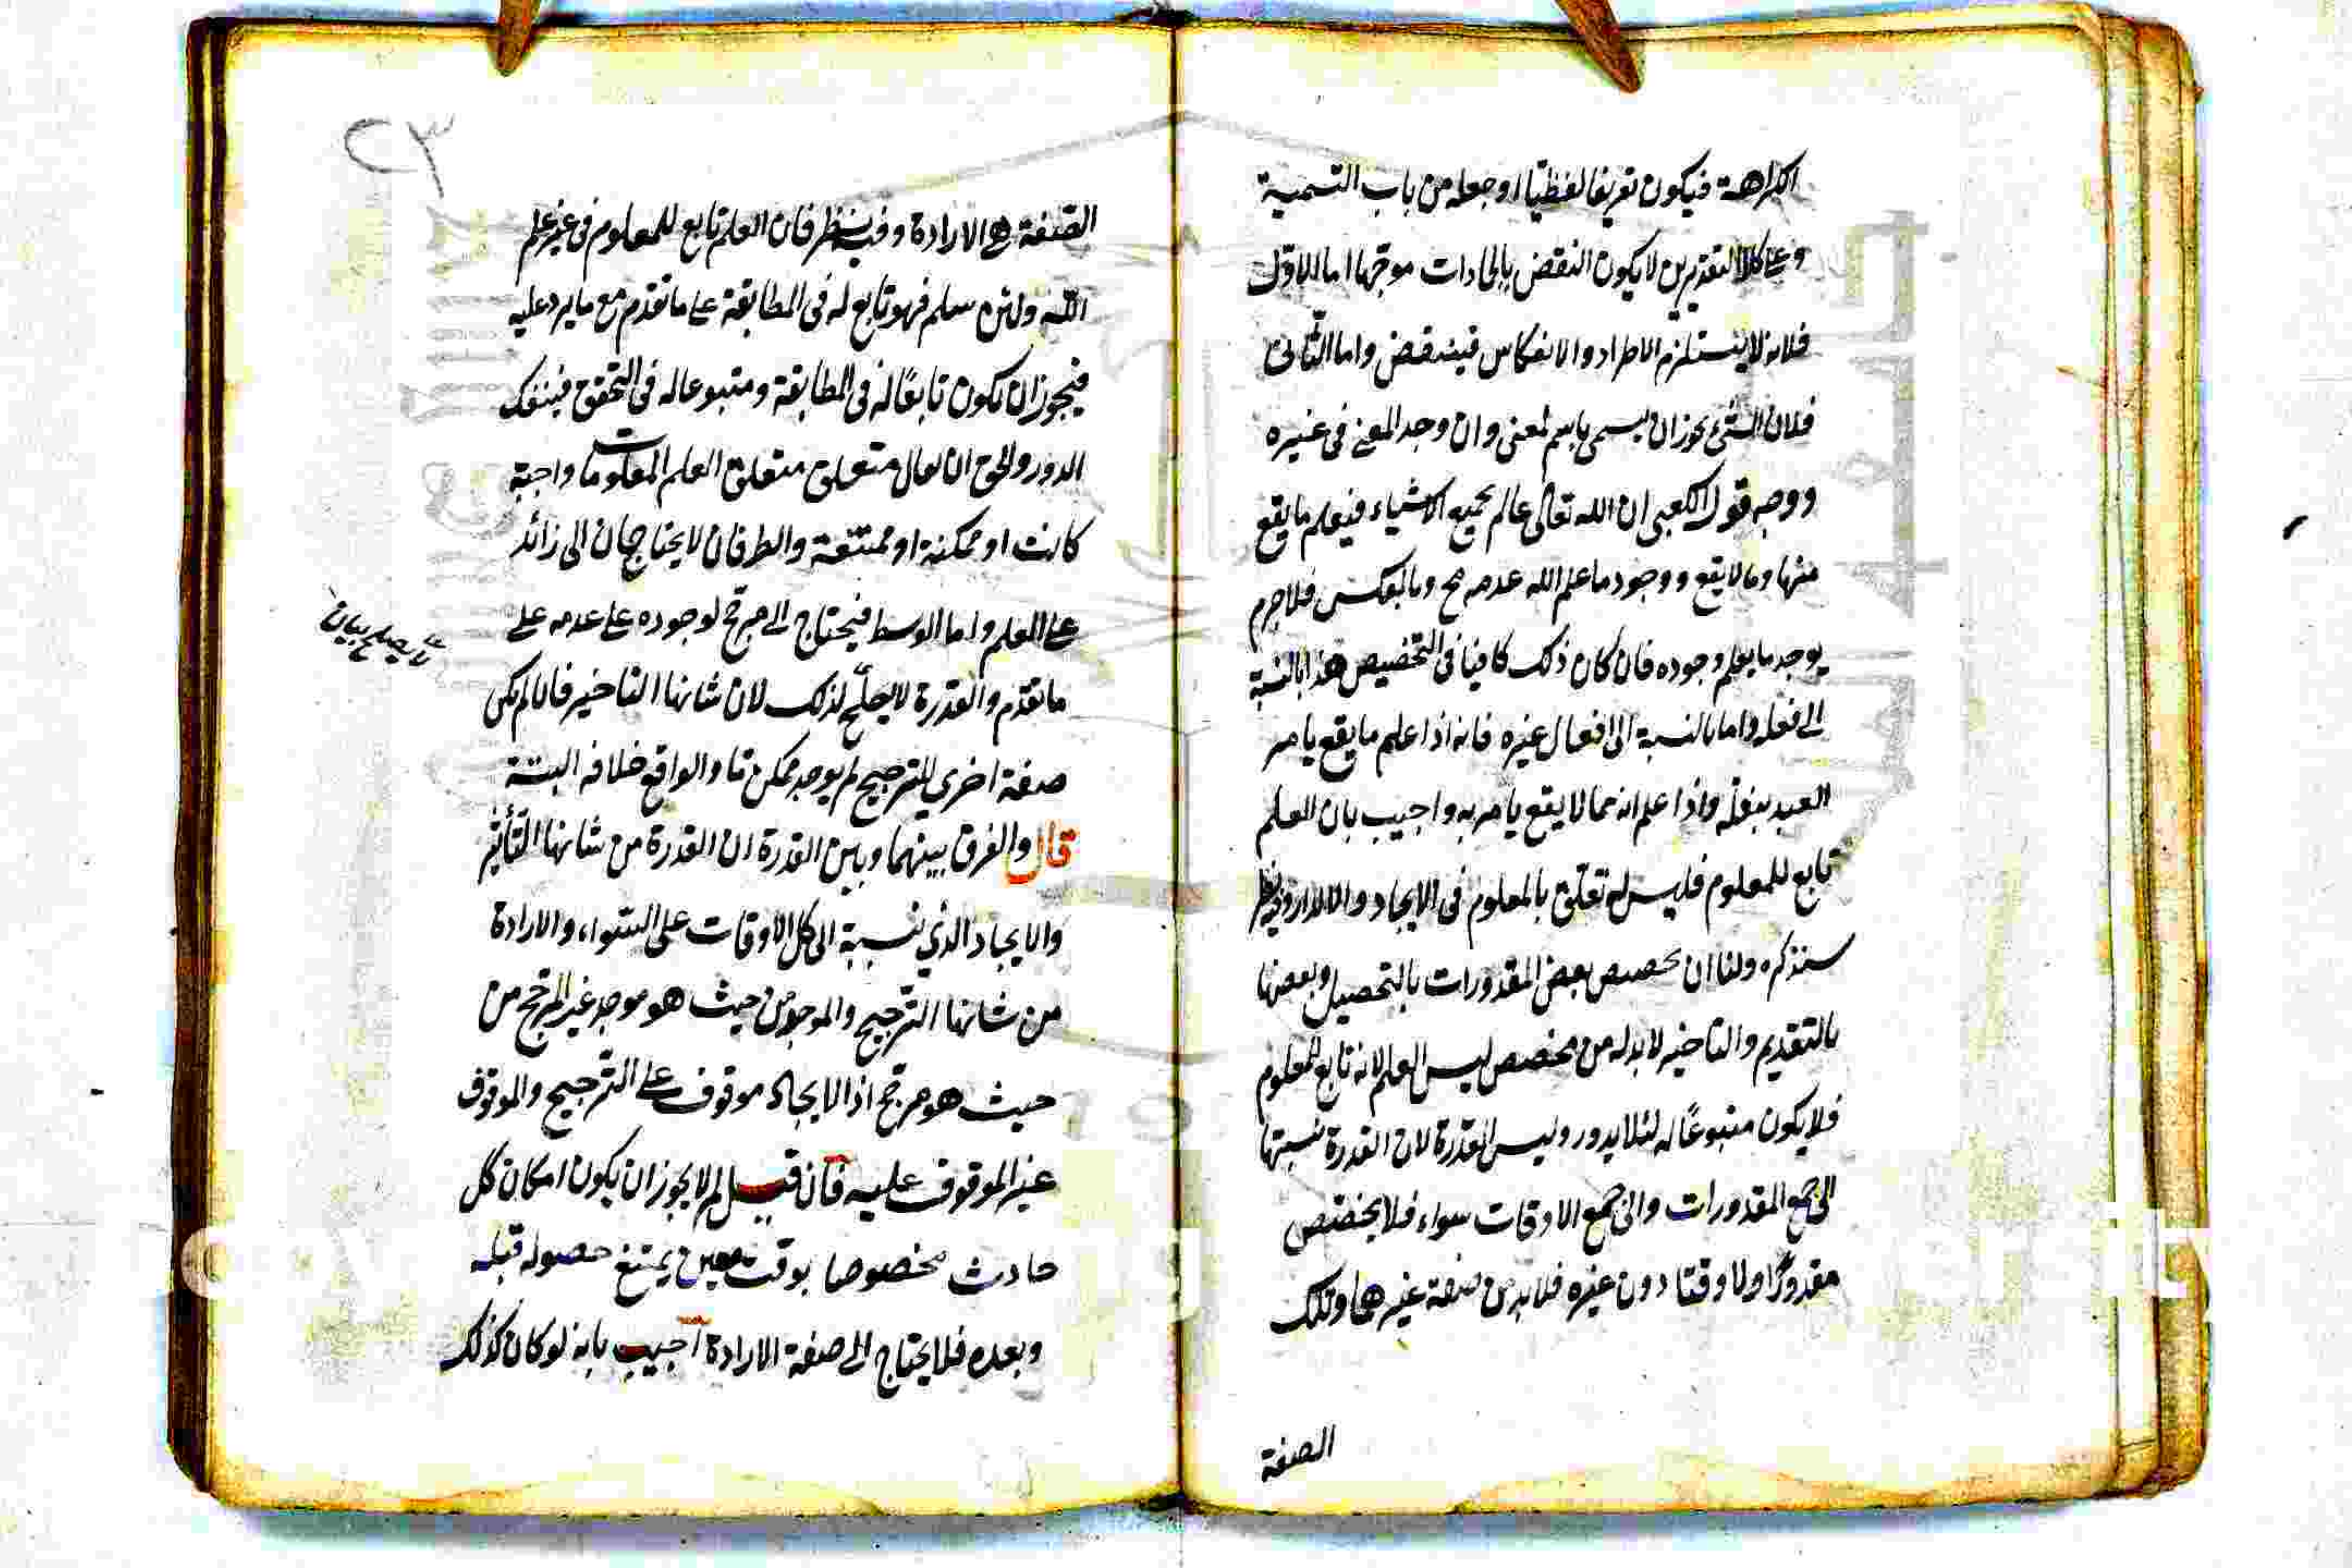 اكراهة فيكون تعريفا لفظيا او جعله من باب التسمية
وعلى كلا التقديرين لا يكون النقض بالجادات موجها اما الاول
فلانه لا يستلزم الاطراد والانعكاس فينتقض واما الثانى
فلان الشئ يجوز ان يسمى باسم لمعنى وان وجد المعنى فى غيره
ووجه قول الكعبى ان الله تعالى عالم بجميع الاشياء فيعلم ما يقع
منها وما لا يقع ووجود ما علم الله عدمه مح وبالعكس فلاجرم
يوجد ما يعلم وجوده فان كان ذلك كافيا فى التخصيص هذا بالنسبة
الى فعله واما بالنسبة الى افعال غيره فانه اذا علم ما يقع يامر
العبد بفعله واذا علم انه مما لا يقع يامر به واجيب بان العلم
تابع للمعلوم فليس له تعلق بالمعلوم فى الايجاد و
سنذكره ولنا ان تخصيص بعض المقدورات بالتحصيل وبعضها
بالتقديم والتاخير لا بد له من مخصص ليس العلم لانه تابع للمعلوم
فلا يكون متبوعًا له لئلا يدور وليس القدرة لان القدرة نسبتها
الى جميع المقدورات والى جميع الاوقات سواء فلا يختص
مقدورًا ولا وقتا دون غيره فلا بد من صفة غيرهما وتلك
الصفة
٢٣
الصفة هى الارادة وفيه نظر فان العلم تابع للمعلوم فى غير علم
الله ولئن سلم فهو تابع له فى المطابقة على ما تقدم مع ما يرد عليه
فيجوز ان يكون تابعًا له فى المطابقة ومتبوعا له فى التحقق فينفك
الدور والحق ان يقال متعلق متعلق العلم المعلومات واجبة
كانت او ممكنة او ممتنعة والطرفان لا يحتاجان الى زائد
على العلم واما الوسط فيحتاج الى مرجح لوجوده على عدمه على
ما تقدم والقدرة لا يصلح لذلك لان شانها التاخير فان لم يكن
لا يصلح بيان
صفة اخرى للترجيح لم يوجد ممكن ما والواقع خلافه البتة
قال والفرق بينهما وبين القدرة ان القدرة من شانها التأثير
والايجاد الذى نسبة الى كل الاوقات على السواء، والارادة
من شانها الترجيح والموجد من حيث هو موجد غير المرجح من
حيث هو مرجح اذ الايجاد موقوف على الترجيح والموقوف
غير الموقوف عليه فان قيل لم لا يجوز ان يكون امكان كل
حادث مخصوصا بوقت معين يمتنع حصوله قبله
وبعده فلا يحتاج الى صفة الارادة اجيب بانه لو كان كذلك